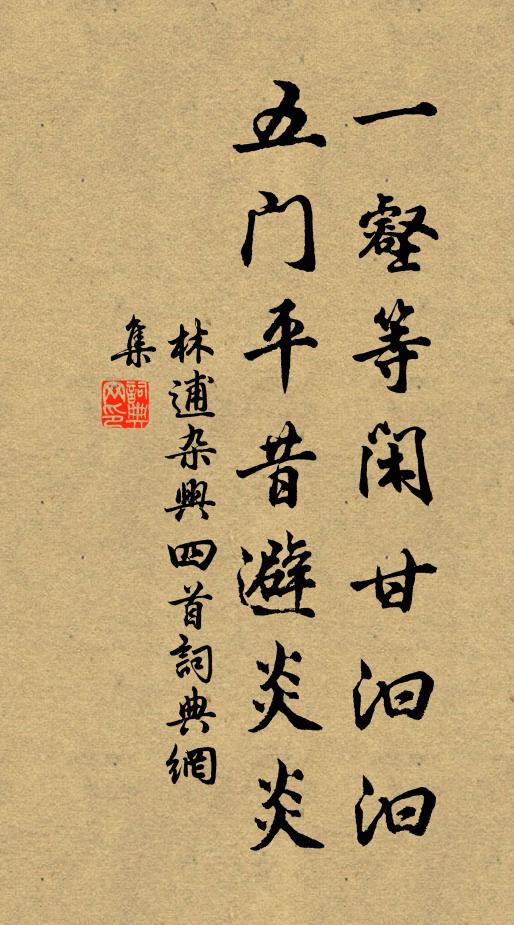 一壑等閑甘汩汩
五門平昔避炎炎
林逋杂興四首詞典網
集
詞典
网印